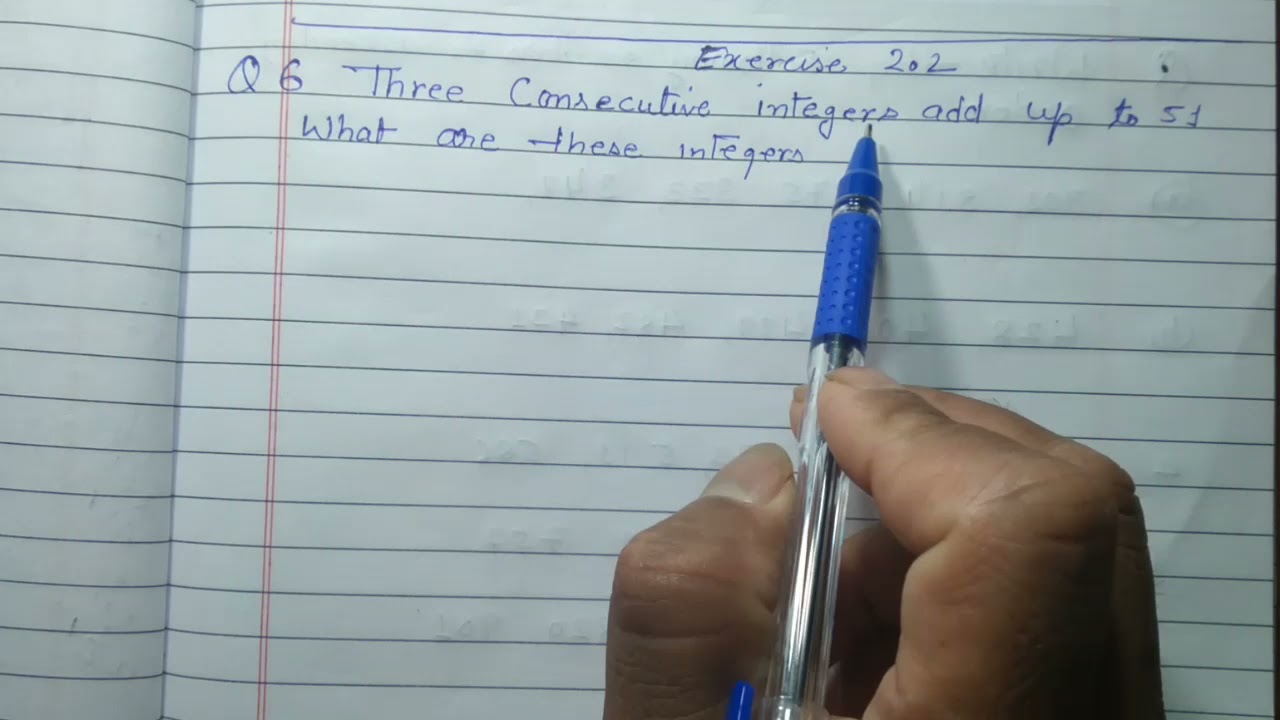 Exercise 2.2
Q 6 Three Consecutive integers add up to 51
What are these integers